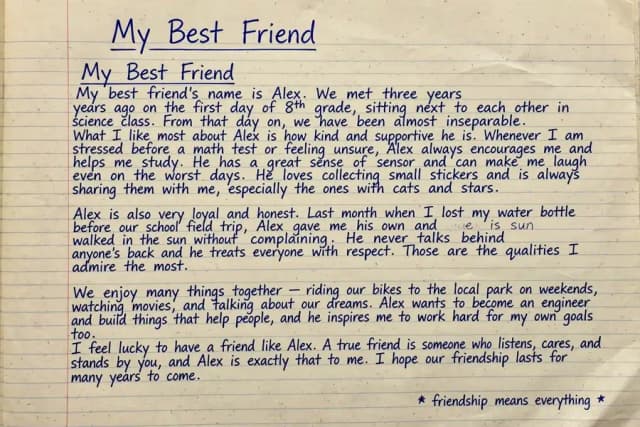 My Best Friend
My Best Friend
My best friend's name is Alex. We met three years
years ago on the first day of 8th grade, sitting next to each other in
science class. From that day on, we have been almost inseparable.
What I like most about Alex is how kind and supportive he is. Whenever I am
stressed before a math test or feeling unsure, Alex always encourages me and
helps me study. He has a great sense of sensor and can make me laugh
even on the worst days. He loves collecting small stickers and is always
sharing them with me, especially the ones with cats and stars.
Alex is also very loyal and honest. Last month when I lost my water bottle
before our school field trip, Alex gave me his own and is sun
walked in the sun without complaining. He never talks behind
anyone's back and he treats everyone with respect. Those are the qualities I
admire the most.
We enjoy many things together — riding our bikes to the local park on weekends,
watching movies, and talking about our dreams. Alex wants to become an engineer
and build things that help people, and he inspires me to work hard for my own goals
too.
I feel lucky to have a friend like Alex. A true friend is someone who listens, cares, and
stands by you, and Alex is exactly that to me. I hope our friendship lasts for
many years to come.
* friendship means everything *